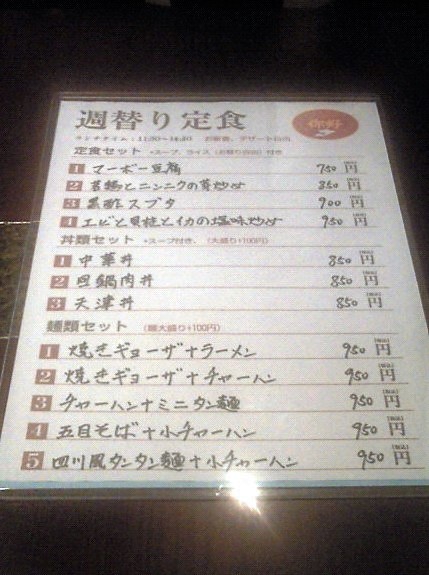 週替り定食
ランチタイム：11:30～14:30 お新香、デザート付
定食セット +スープ、ライス（お替り自由）付き
1 マーボー豆腐 750円(税込)
2 若鶏とニンニクの芽炒め 850円(税込)
3 黒酢スブタ 900円(税込)
4 エビと貝柱とイカの塩味炒め 950円(税込)
丼類セット +スープ付き、(大盛り+100円)
1 中華丼 850円(税込)
2 回鍋肉丼 850円(税込)
3 天津丼 850円(税込)
麺類セット (麺大盛り+100円)
1 焼きギョーザ+ラーメン 950円(税込)
2 焼きギョーザ+チャーハン 950円(税込)
3 チャーハン+ミニタン麺 950円(税込)
4 五目そば+小チャーハン 950円(税込)
5 四川風タンタン麺+小チャーハン 950円(税込)